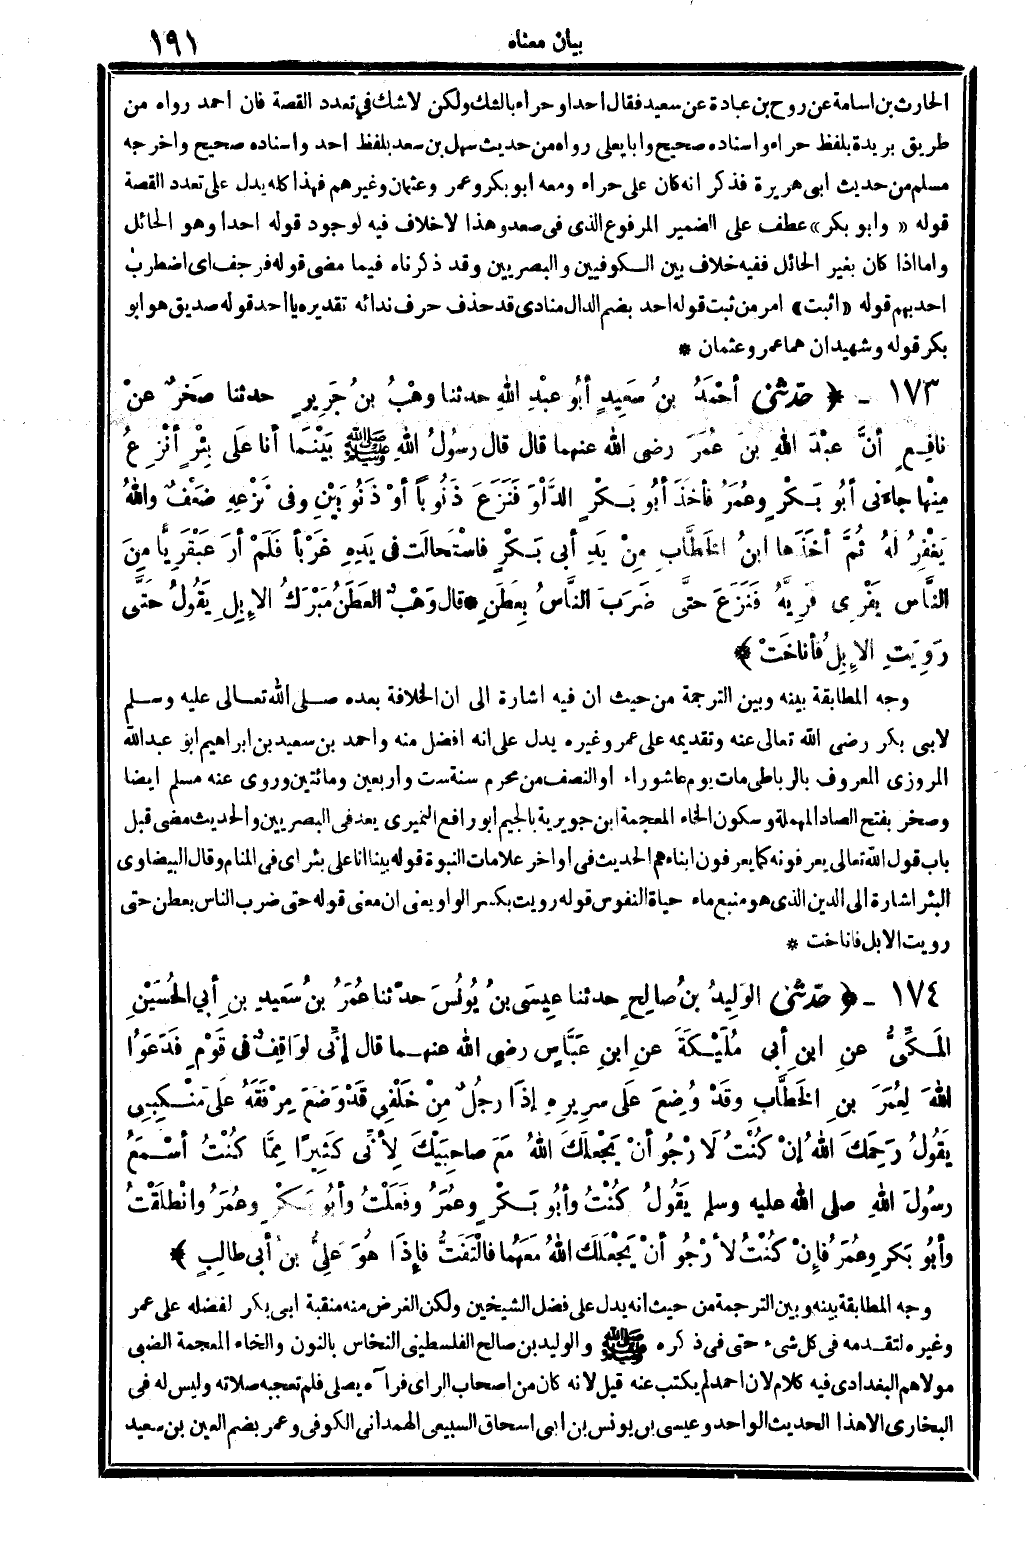 بيان معناه ١٩١
الحارث بن اسامة عن روح بن عبادة عن سعيد فقال احدا وحراء بالشك ولكن لاشك في تعدد القصة فان احمد رواه من
طريق بريدة بلفظ حراء واسناده صحيح وابا يعلى رواه من حديث سهل بن سعد بلفظ احد واسناده صحيح واخرجه
مسلم من حديث ابى هريرة فذكر انه كان على حراء ومعه ابو بكر وعمر وعثمان وغيرهم فهذا كله يدل على تعدد القصة
قوله « وابو بكر » عطف على الضمير المرفوع الذى فى صعد وهذا لا خلاف فيه لوجود قوله احدا وهو الحائل
واما اذا كان بغير الحائل ففيه خلاف بين الكوفيين والبصريين وقد ذكرناه فيما مضى قوله فرجف اى اضطرب
احد بهم قوله « اثبت » امر من ثبت قوله احد بضم الدال منادى قد حذف حرف ندائه تقديره يا احد قوله صديق هو ابو
بكر قوله وشهيدان هما عمر وعثمان *
١٧٣ ـ ﴿ حَدَّثَنِى أَحْمَدُ بنُ سَعِيدٍ أبُو عبْدِ اللهِ حدثنا وهْبُ بنُ جَرِيرٍ حدثنا صَخْرٌ عنْ
نافِعٍ أنَّ عبْدَ اللهِ بنَ عُمَرَ رضى الله عنهما قال قال رسُولُ اللهِ ﷺ بَيْنَما أنا عَلَى بِئْرٍ أنْزِعُ
مِنْها جاءَنى أبُو بَكْرٍ وعُمَرُ فأخَذَ أبُو بَكْرٍ الدَّلْوَ فَنَزَعَ ذَنُوباً أوْ ذَنُوبَيْنِ وفى نَزْعِهِ ضَعْفٌ واللهُ
يَغْفِرُ لَهُ ثُمَّ أخَذَها ابنُ الخَطَّابِ مِنْ يَدِ أبى بَكْرٍ فاسْتَحالَتْ فى يَدِهِ غَرْباً فَلَمْ أرَ عَبْقَرِيًّا مِنَ
النَّاسِ يَفْرِى فَرِيَّهُ فَنَزَعَ حتَّى ضَرَبَ النَّاسُ بِعَطَنٍ * قال وَهْبٌ العَطَنُ مَبْرَكُ الإبِلِ يَقُولُ حَتَّى
رَوِيَتِ الإبِلُ فأناخَتْ ﴾
وجه المطابقة بينه وبين الترجمة من حيث ان فيه اشارة الى ان الخلافة بعده صلى الله تعالى عليه وسلم
لابى بكر رضى الله تعالى عنه وتقديمه على عمر وغيره يدل على انه افضل منه واحمد بن سعيد بن ابراهيم ابو عبدالله
المروزى المعروف بالرباطى مات يوم عاشوراء او النصف من محرم سنة ست واربعين ومائتين وروى عنه مسلم ايضا
وصخر بفتح الصاد المهملة وسكون الخاء المعجمة ابن جويرية بالجيم ابو رافع النميرى يعد فى البصريين والحديث مضى قبل
باب قول الله تعالى يعرفونه كما يعرفون ابناءهم الحديث فى اواخر علامات النبوة قوله بينا انا على بئر اى فى المنام وقال البيضاوى
البئر اشارة الى الدين الذى هو منبع ماء حياة النفوس قوله رويت بكسر الواو يعنى ان معنى قوله حتى ضرب الناس بعطن حتى
رويت الابل فاناخت *
١٧٤ ـ ﴿ حَدَّثَنِى الوَلِيدُ بنُ صالِحٍ حدثنا عيسَى بنُ يُونُسَ حدّثنا عُمَرُ بنُ سَعِيدِ بنِ أبي الحُسَيْنِ
المَكِّىُّ عنِ ابنِ أبي مُلَيْكَةَ عنِ ابنِ عَبَّاسٍ رضى الله عنهما قال إنِّى لوَاقِفٌ فى قَوْمٍ فَدَعَوُا
اللهَ لِعُمَرَ بنِ الخَطَّابِ وقَدْ وُضِعَ عَلَى سرِيرِهِ إذَا رجُلٌ مِنْ خَلْفِى قَدْ وَضَعَ مِرْفَقَهُ عَلَى مَنْكِبِى
يَقُولُ رَحِمَكَ اللهُ إنْ كُنْتُ لَأرْجُو أنْ يَجْعَلَكَ اللهُ مَعَ صاحِبَيْكَ لِأنِّى كَثِيرًا مِمَّا كُنْتُ أسْمَعُ
رسُولَ اللهِ صلى الله عليه وسلم يَقُولُ كُنْتُ وأبُو بَكْرٍ وعُمَرُ وفَعَلْتُ وأبُو بَكْرٍ وعُمَرُ وانْطَلَقْتُ
وأبُو بَكْرٍ وعُمَرُ فإِنْ كُنْتُ لأرْجُو أنْ يَجْعَلَكَ اللهُ مَعَهُما فالْتَفَتُّ فإذَا هُوَ عَلِىُّ بنُ أبى طالِبٍ ﴾
وجه المطابقة بينه وبين الترجمة من حيث انه يدل على فضل الشيخين ولكن الغرض منه منقبة ابى بكر لفضله على عمر
وغيره لتقدمه فى كل شىء حتى فى ذكره ﷺ والوليد بن صالح الفلسطينى النخاس بالنون والخاء المعجمة الضبى
مولاهم البغدادى فيه كلام لان احمد لم يكتب عنه قيل لانه كان من اصحاب الراى فرآه يصلى فلم تعجبه صلاته وليس له فى
البخارى الا هذا الحديث الواحد وعيسى بن يونس بن ابى اسحاق السبيعى الهمدانى الكوفى وعمر بضم العين بن سعيد